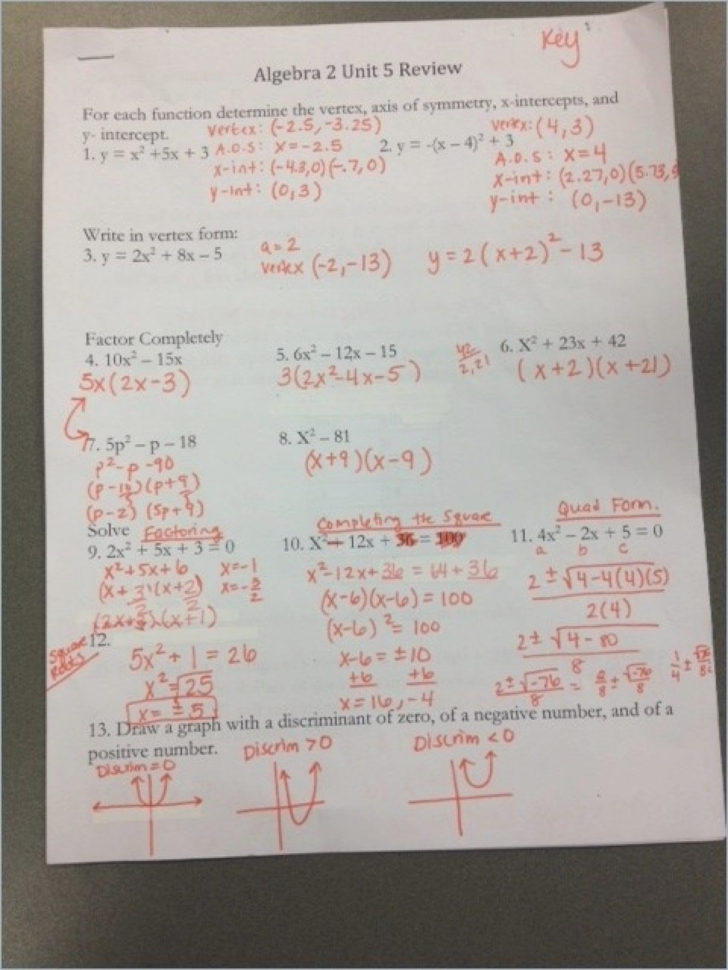 Key
Algebra 2 Unit 5 Review
For each function determine the vertex, axis of symmetry, x-intercepts, and
y- intercept.
1. y = x² +5x + 3
vertex: (-2.5, -3.25)
A.O.S: X = -2.5
x-int: (-4.3,0)(-.7,0)
y-int: (0,3)
2. y = -(x – 4)² + 3
vertex: (4,3)
A.O.S: X=4
x-int: (2.27,0)(5.73,
y-int: (0,-13)
Write in vertex form:
3. y = 2x² + 8x – 5
a=2
vertex (-2,-13)
y = 2(x+2)² - 13
Factor Completely
4. 10x² – 15x
5x(2x-3)
5. 6x² – 12x – 15
3(2x²-4x-5)
42
2,21
6. X² + 23x + 42
(x+2)(x+21)
7. 5p² – p – 18
p²-p-90
(p-10)(p+9)
5 5
(p-2)(5p+9)
8. X² – 81
(x+9)(x-9)
Solve Factoring
9. 2x² + 5x + 3 = 0
x²+5x+6
(x+3)(x+2)
2 2
(2x+3)(x+1)
x=-1
x=-3/2
Completing the Square
10. X² + 12x + 36 = 100
x²-12x+36 = 64+36
(x-6)(x-6)=100
(x-6)²=100
x-6=±10
+6 +6
x=16,-4
Quad Form.
11. 4x² – 2x + 5 = 0
a b c
2±√4-4(4)(5)
2(4)
2±√4-80
8
2±√-76 = 2 ± √-76
8 8 8
1/4 ±
Square
Roots
12.
5x²+1=26
x²=25
x=±5
13. Draw a graph with a discriminant of zero, of a negative number, and of a
positive number.
Discrim=0
Discrim >0
Discrim <0